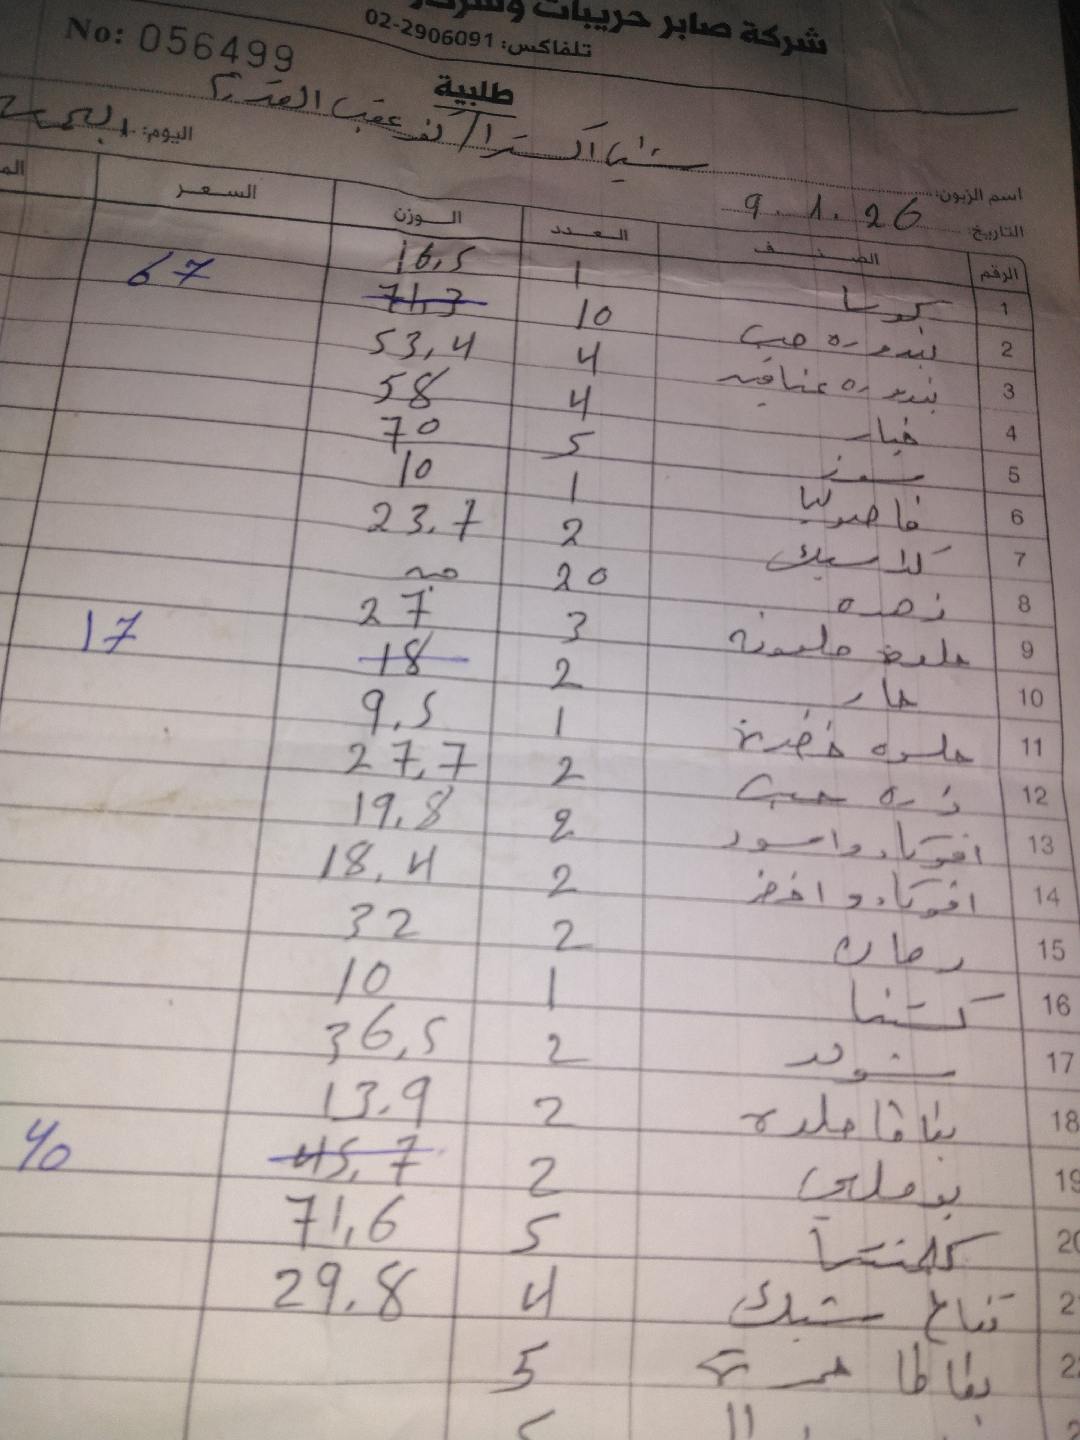 شركة صابر حريبات وشركاه
تلفاكس: 02-2906091
No: 056499
طلبية
اسم الزبون: اكسترا / كفر عقب
التاريخ: 9.1.26 اليوم: الجمعة
الرقم الصنف العدد الوزن السعر
1 كوسا 1 16,5
2 بندوره حب 10 71,3 67
3 بندوره عناقيد 4 53,4
4 خيار 4 58
5 موز 5 70
6 فاصوليا 1 10
7 كلاسيك 2 23,7
8 زهره 20 حبه
9 3 27
10 حار 2 18 17
11 حلوه 1 9,5
12 ذره حب 2 27,7
13 افوكادو اسود 2 19,8
14 افوكادو اخضر 2 18,4
15 رمان 2 32
16 كستنا 1 10
17 2 36,5
18 بطاطا حلوه 2 13,9
19 بوملي 2 45,7 40
20 كلمنتينا 5 71,6
21 تفاح 4 29,8
22 بطاطا 5